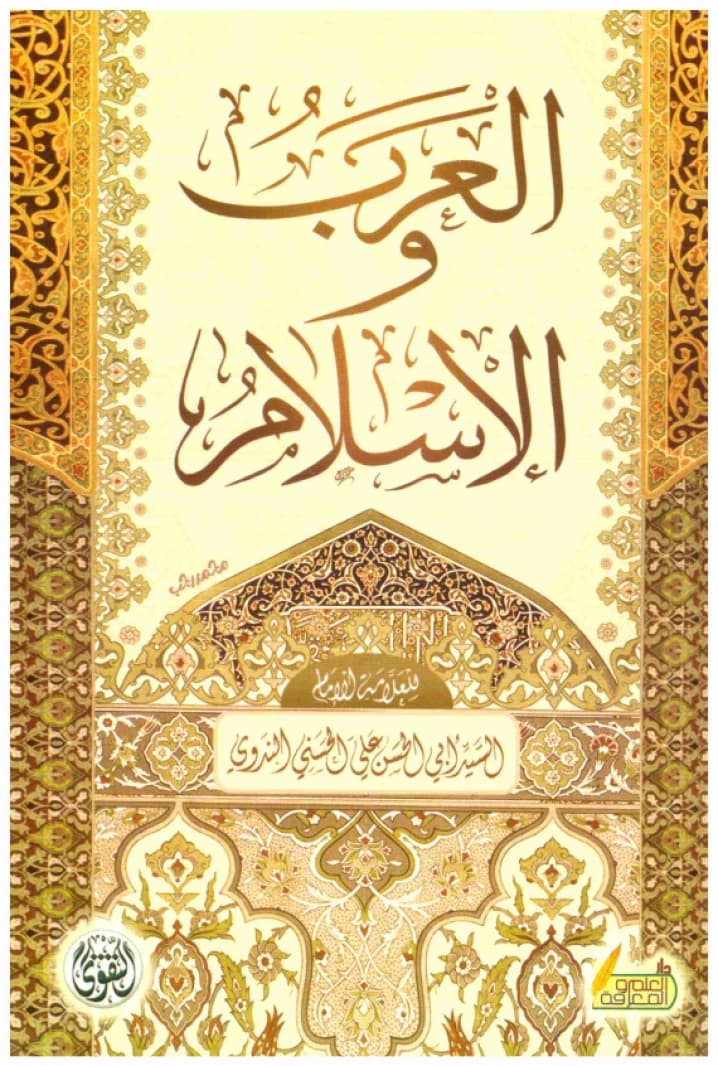 العَرَبُ
و
الإسْلَامُ
للعلامة الإمام
السيد أبي الحسن علي الحسني الندوي
التقوى
دار
العلم و
المعرفة